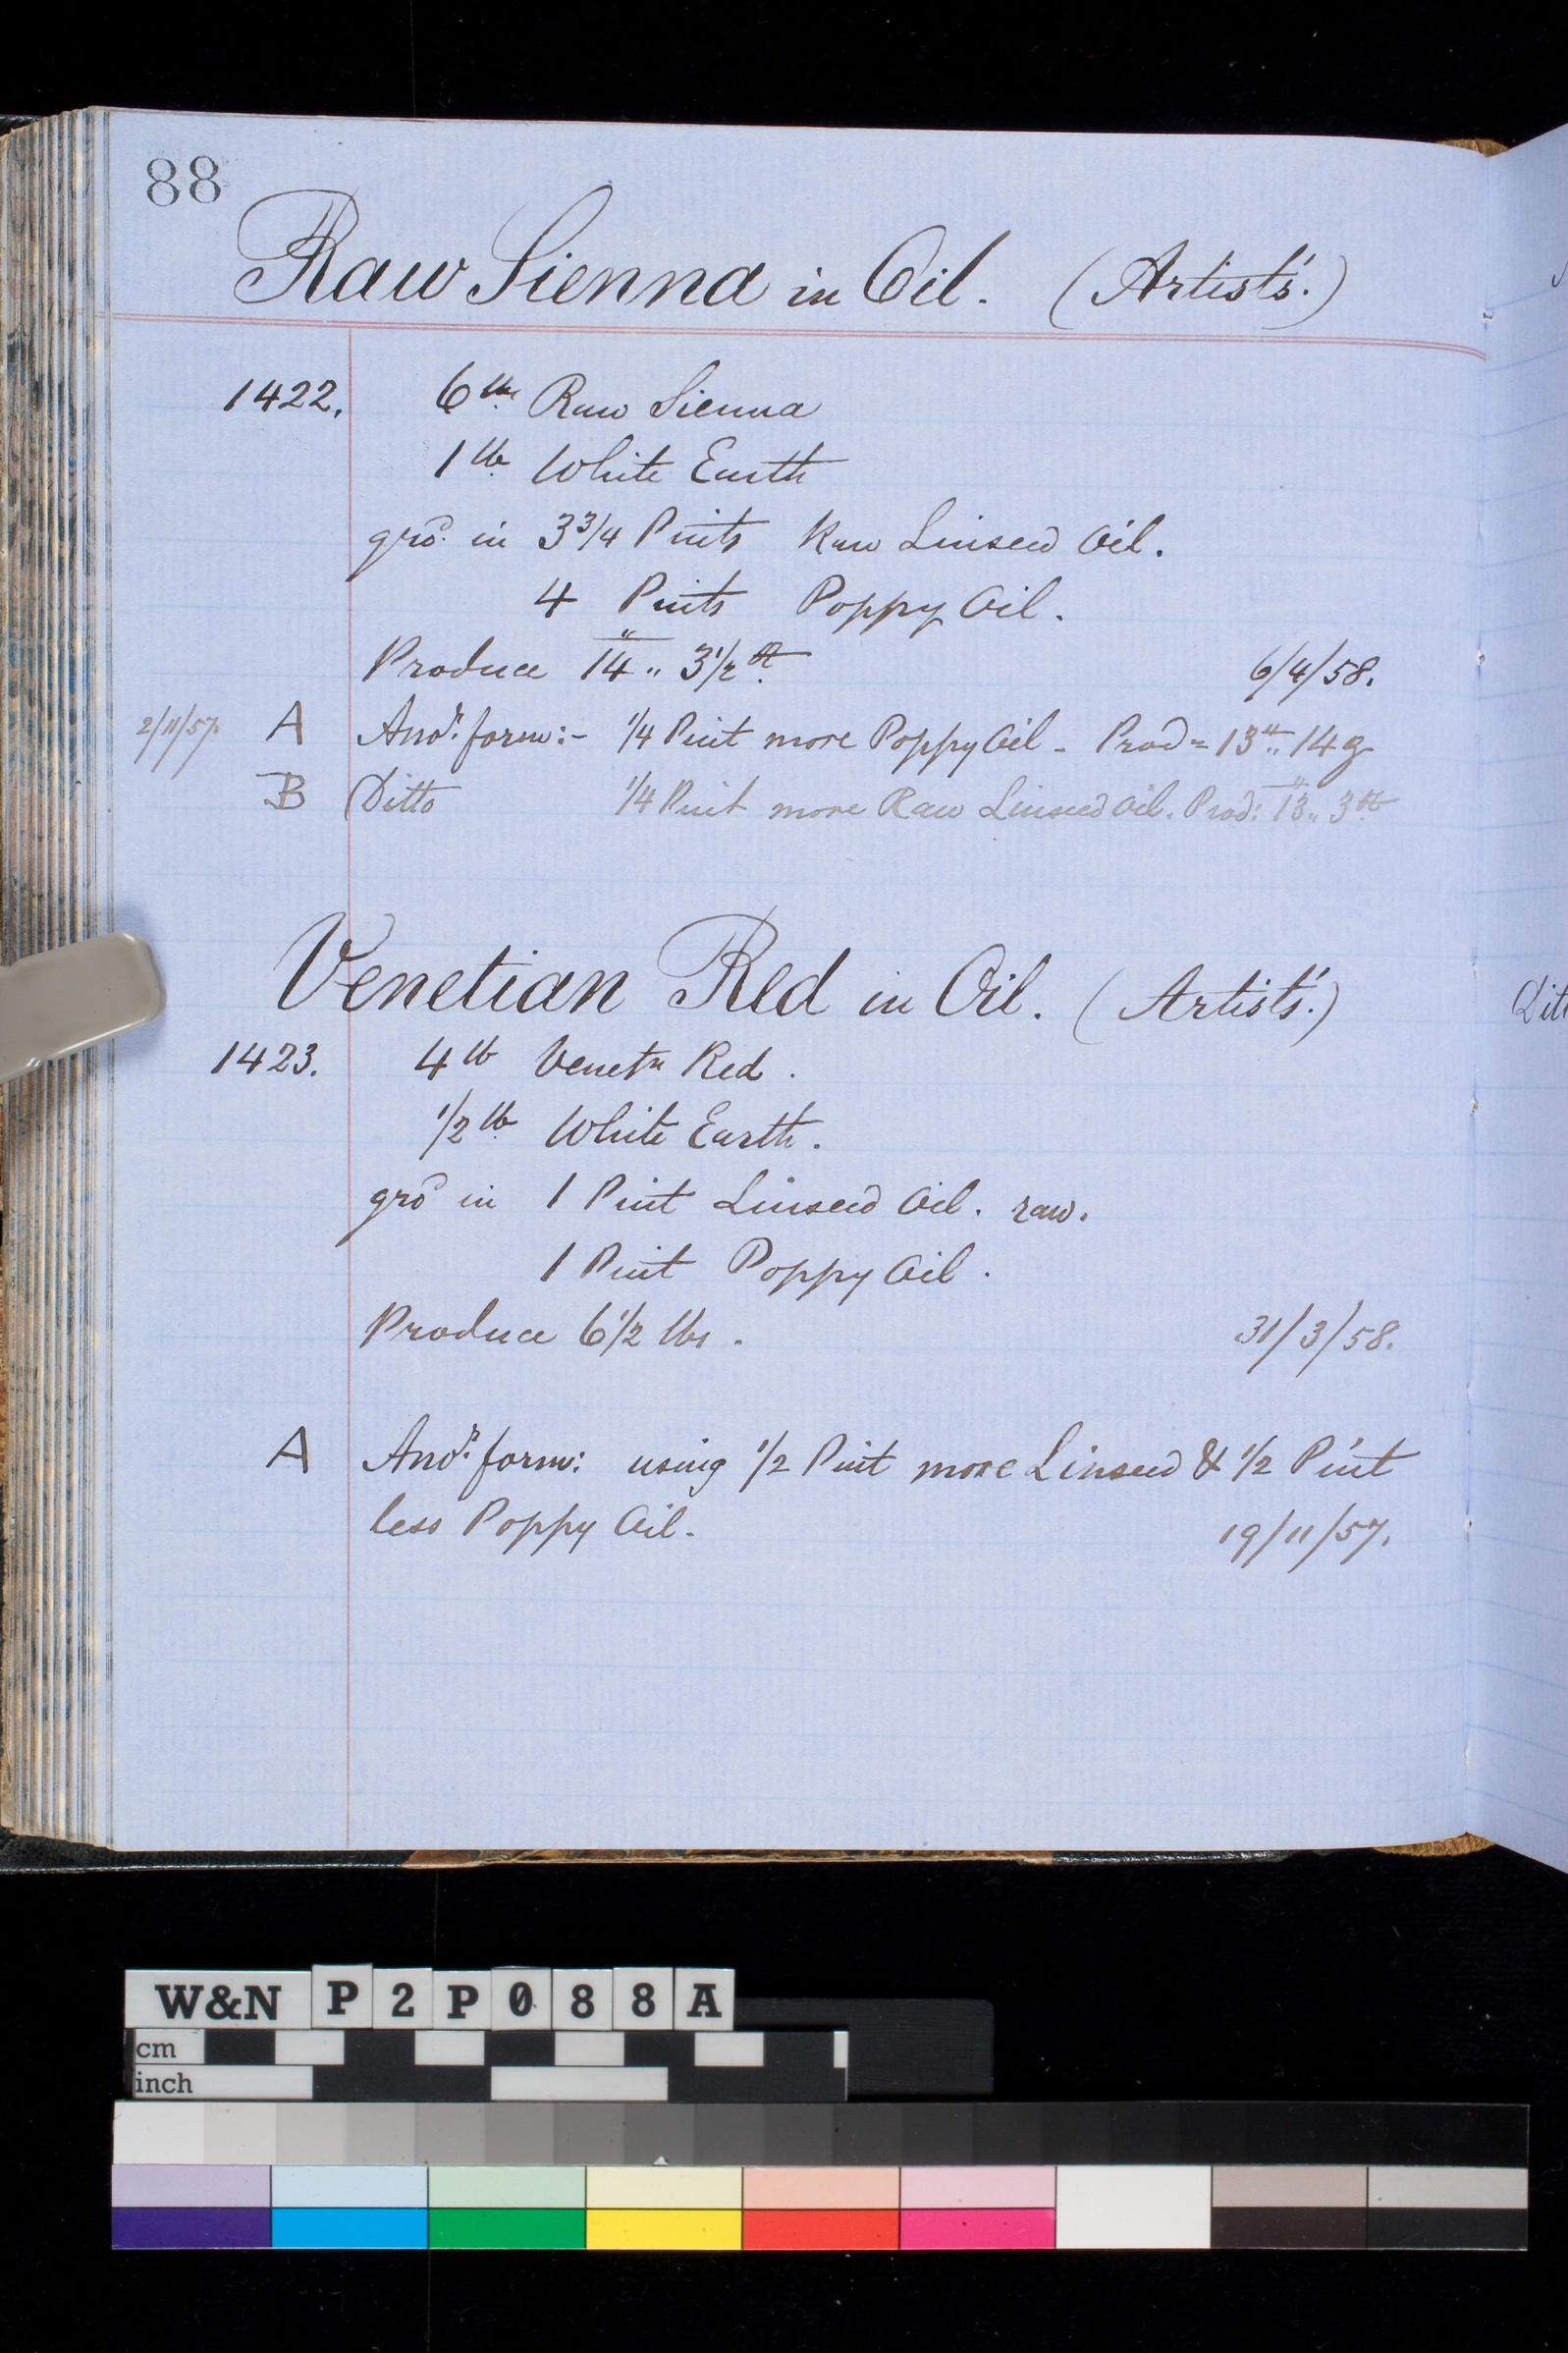 88
Raw Sienna in Oil. (Artists'.)
1422. 6 lbs Raw Sienna
1 lb White Earth
gro^d. in 3 3/4 Pints Raw Linseed Oil.
4 Pints Poppy Oil.
Produce 14 " 3 1/2 6/4/58.
2/11/57. A Ano^r. form:- 1/4 Pint more Poppy Oil - Prod = 13 " 14
B Ditto 1/4 Pint more Raw Linseed Oil. Prod: 13 " 3
Venetian Red in Oil. (Artists'.)
Dit
1423. 4 lb Venetn Red.
1/2 lb White Earth.
gro^d in 1 Pint Linseed Oil. raw.
1 Pint Poppy Oil.
Produce 6 1/2 lbs. 31/3/58.
A Ano^r. form: using 1/2 Pint more Linseed & 1/2 Pint
less Poppy Oil. 19/11/57.
W&N P2P088A
cm
inch